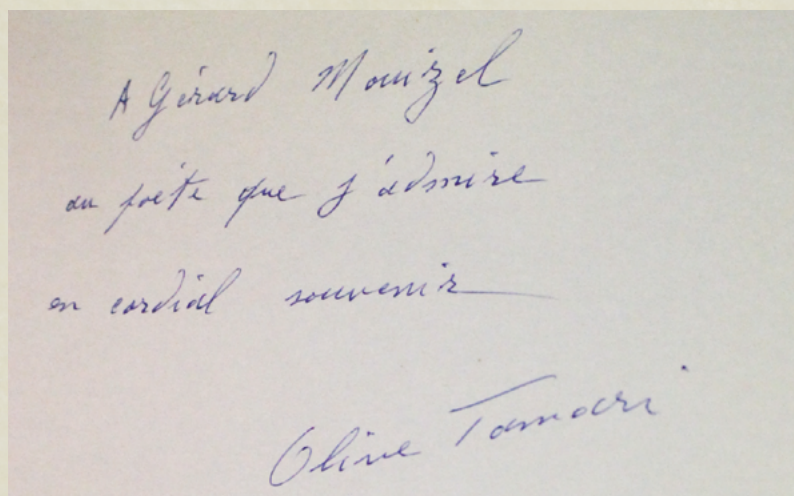 A Gérard Mouizel
au poète que j'admire
en cordial souvenir
Olive Tamari